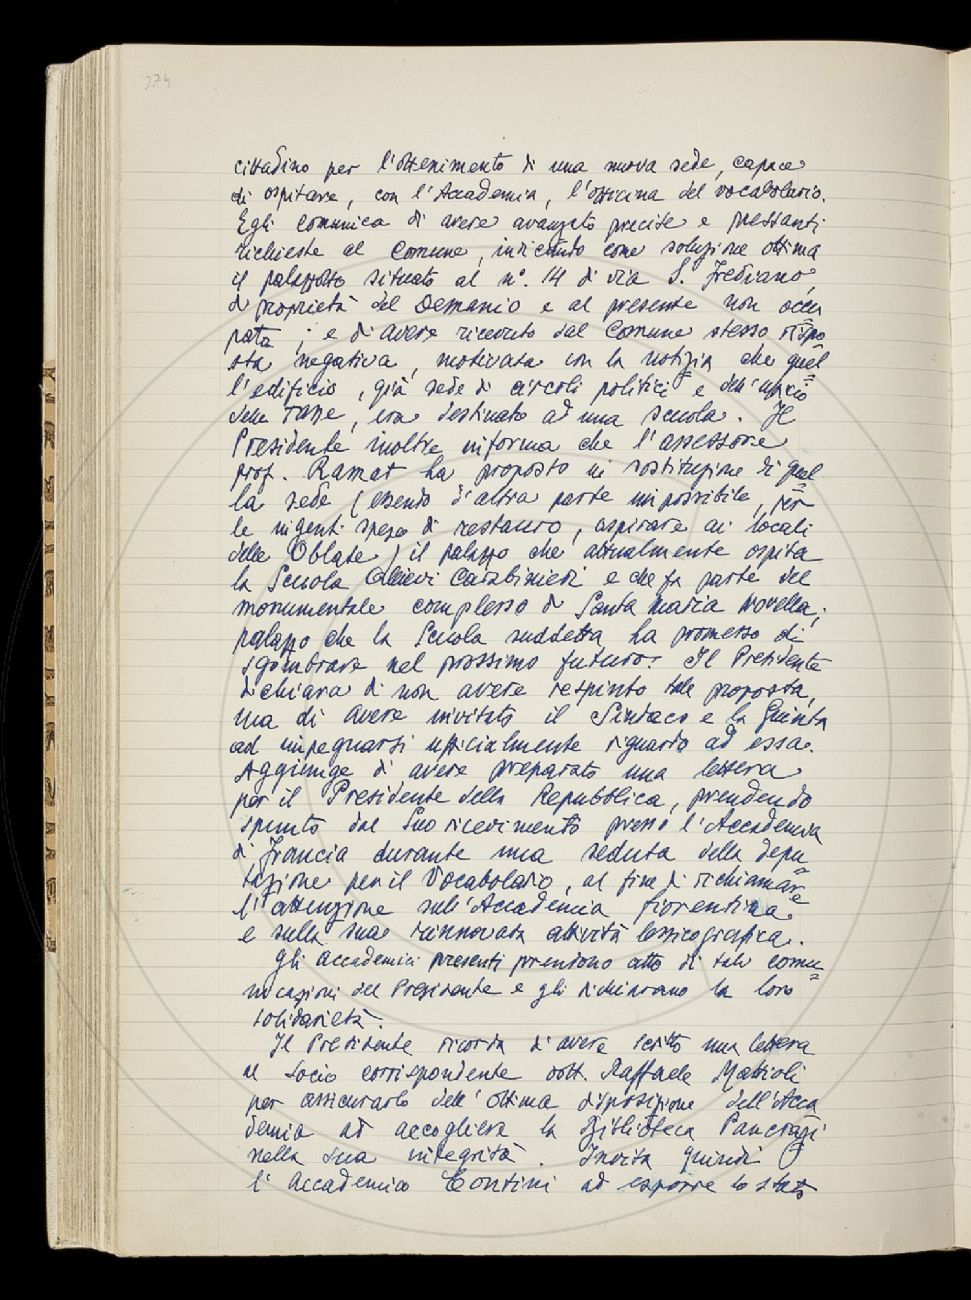 274
cittadino per l'ottenimento di una nuova sede, capace
di ospitare, con l'Accademia, l'officina del vocabolario.
Egli comunica di avere avanzato precise e pressanti
richieste al Comune, indicando come soluzione ottima
il palazzotto situato al n°. 14 di via S. Frediano,
di proprietà del Demanio e al presente non occu
pata; e di avere ricevuto dal Comune stesso rispo
sta negativa, motivata con la notizia che quel
l'edificio, già sede di circoli politici e dell'ufficio
delle Tasse, era destinato ad una scuola. Il
Presidente inoltre informa che l'assessore
prof. Ramat ha proposto in sostituzione di quel
la sede (essendo d'altra parte impossibile, per
le ingenti spese di restauro, aspirare ai locali
delle Oblate) il palazzo che attualmente ospita
la Scuola Allievi Carabinieri e che fa parte del
monumentale complesso di Santa Maria Novella;
palazzo che la Scuola suddetta ha promesso di
sgombrare nel prossimo futuro. Il Presidente
dichiara di non avere respinto tale proposta,
ma di avere invitato il Sindaco e la Giunta
ad impegnarsi ufficialmente riguardo ad essa.
Aggiunge di avere preparato una lettera
per il Presidente della Repubblica, prendendo
spunto dal Suo ricevimento presso l'Accademia
di Francia durante una seduta della depu
tazione per il Vocabolario, al fine di richiamare
l'attenzione sull'Accademia fiorentina
e sulla sua rinnovata attività lessicografica.
Gli Accademici presenti prendono atto di tali comu
nicazioni del Presidente e gli dichiarano la loro
solidarietà.
Il Presidente ricorda di avere scritto una lettera
al Socio corrispondente dott. Raffaele Mattioli
per assicurarlo dell'ottima disposizione dell'Acca
demia ad accogliere la Biblioteca Pancrazi
nella sua integrità. Invita quindi
l'Accademico Contini ad esporre lo stato